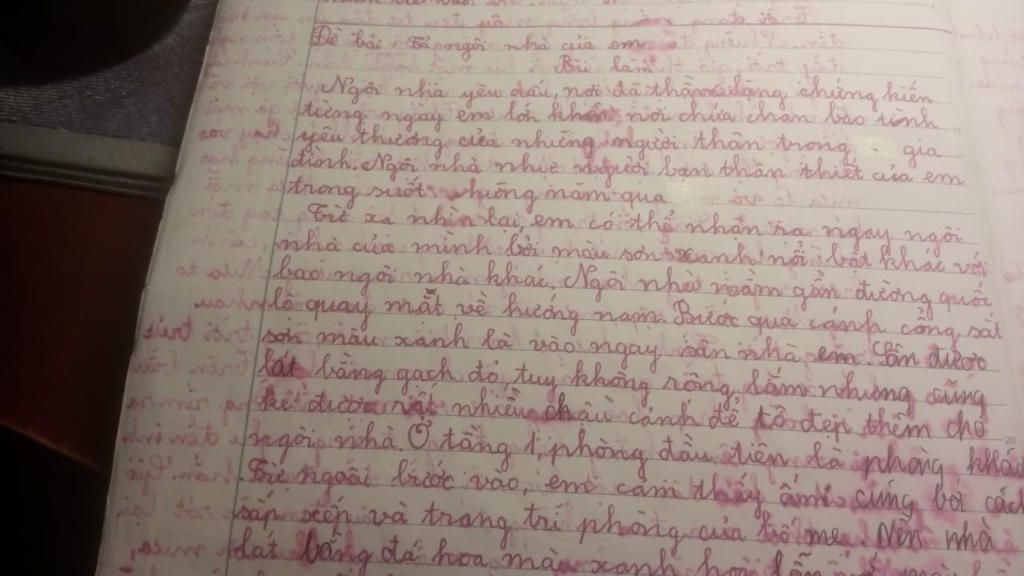 Đề bài Tả ngôi nhà của em
Bài làm
Ngôi nhà yêu dấu, nơi đã thầm lặng chứng kiến
từng ngày em lớn khôn, nơi chứa chan bao tình
yêu thương của những người thân trong gia
đình. Ngôi nhà như người bạn thân thiết của em
trong suốt những năm qua
Từ xa nhìn lại, em có thể nhận ra ngay ngôi
nhà của mình bởi màu sơn xanh nổi bật khác với
bao ngôi nhà khác. Ngôi nhà nằm gần đường quốc
lộ quay mặt về hướng nam. Bước qua cánh cổng sắt
sơn màu xanh là vào ngay sân nhà em. Sân được
lát bằng gạch đỏ, tuy không rộng lắm nhưng cũng
kê được rất nhiều chậu cảnh để tô đẹp thêm cho
ngôi nhà. Ở tầng 1, phòng đầu tiên là phòng khác
Từ ngoài bước vào, em cảm thấy ấm cúng bởi cách
sắp xếp và trang trí phòng của bố mẹ. Nền nhà
lát bằng đá hoa màu xanh